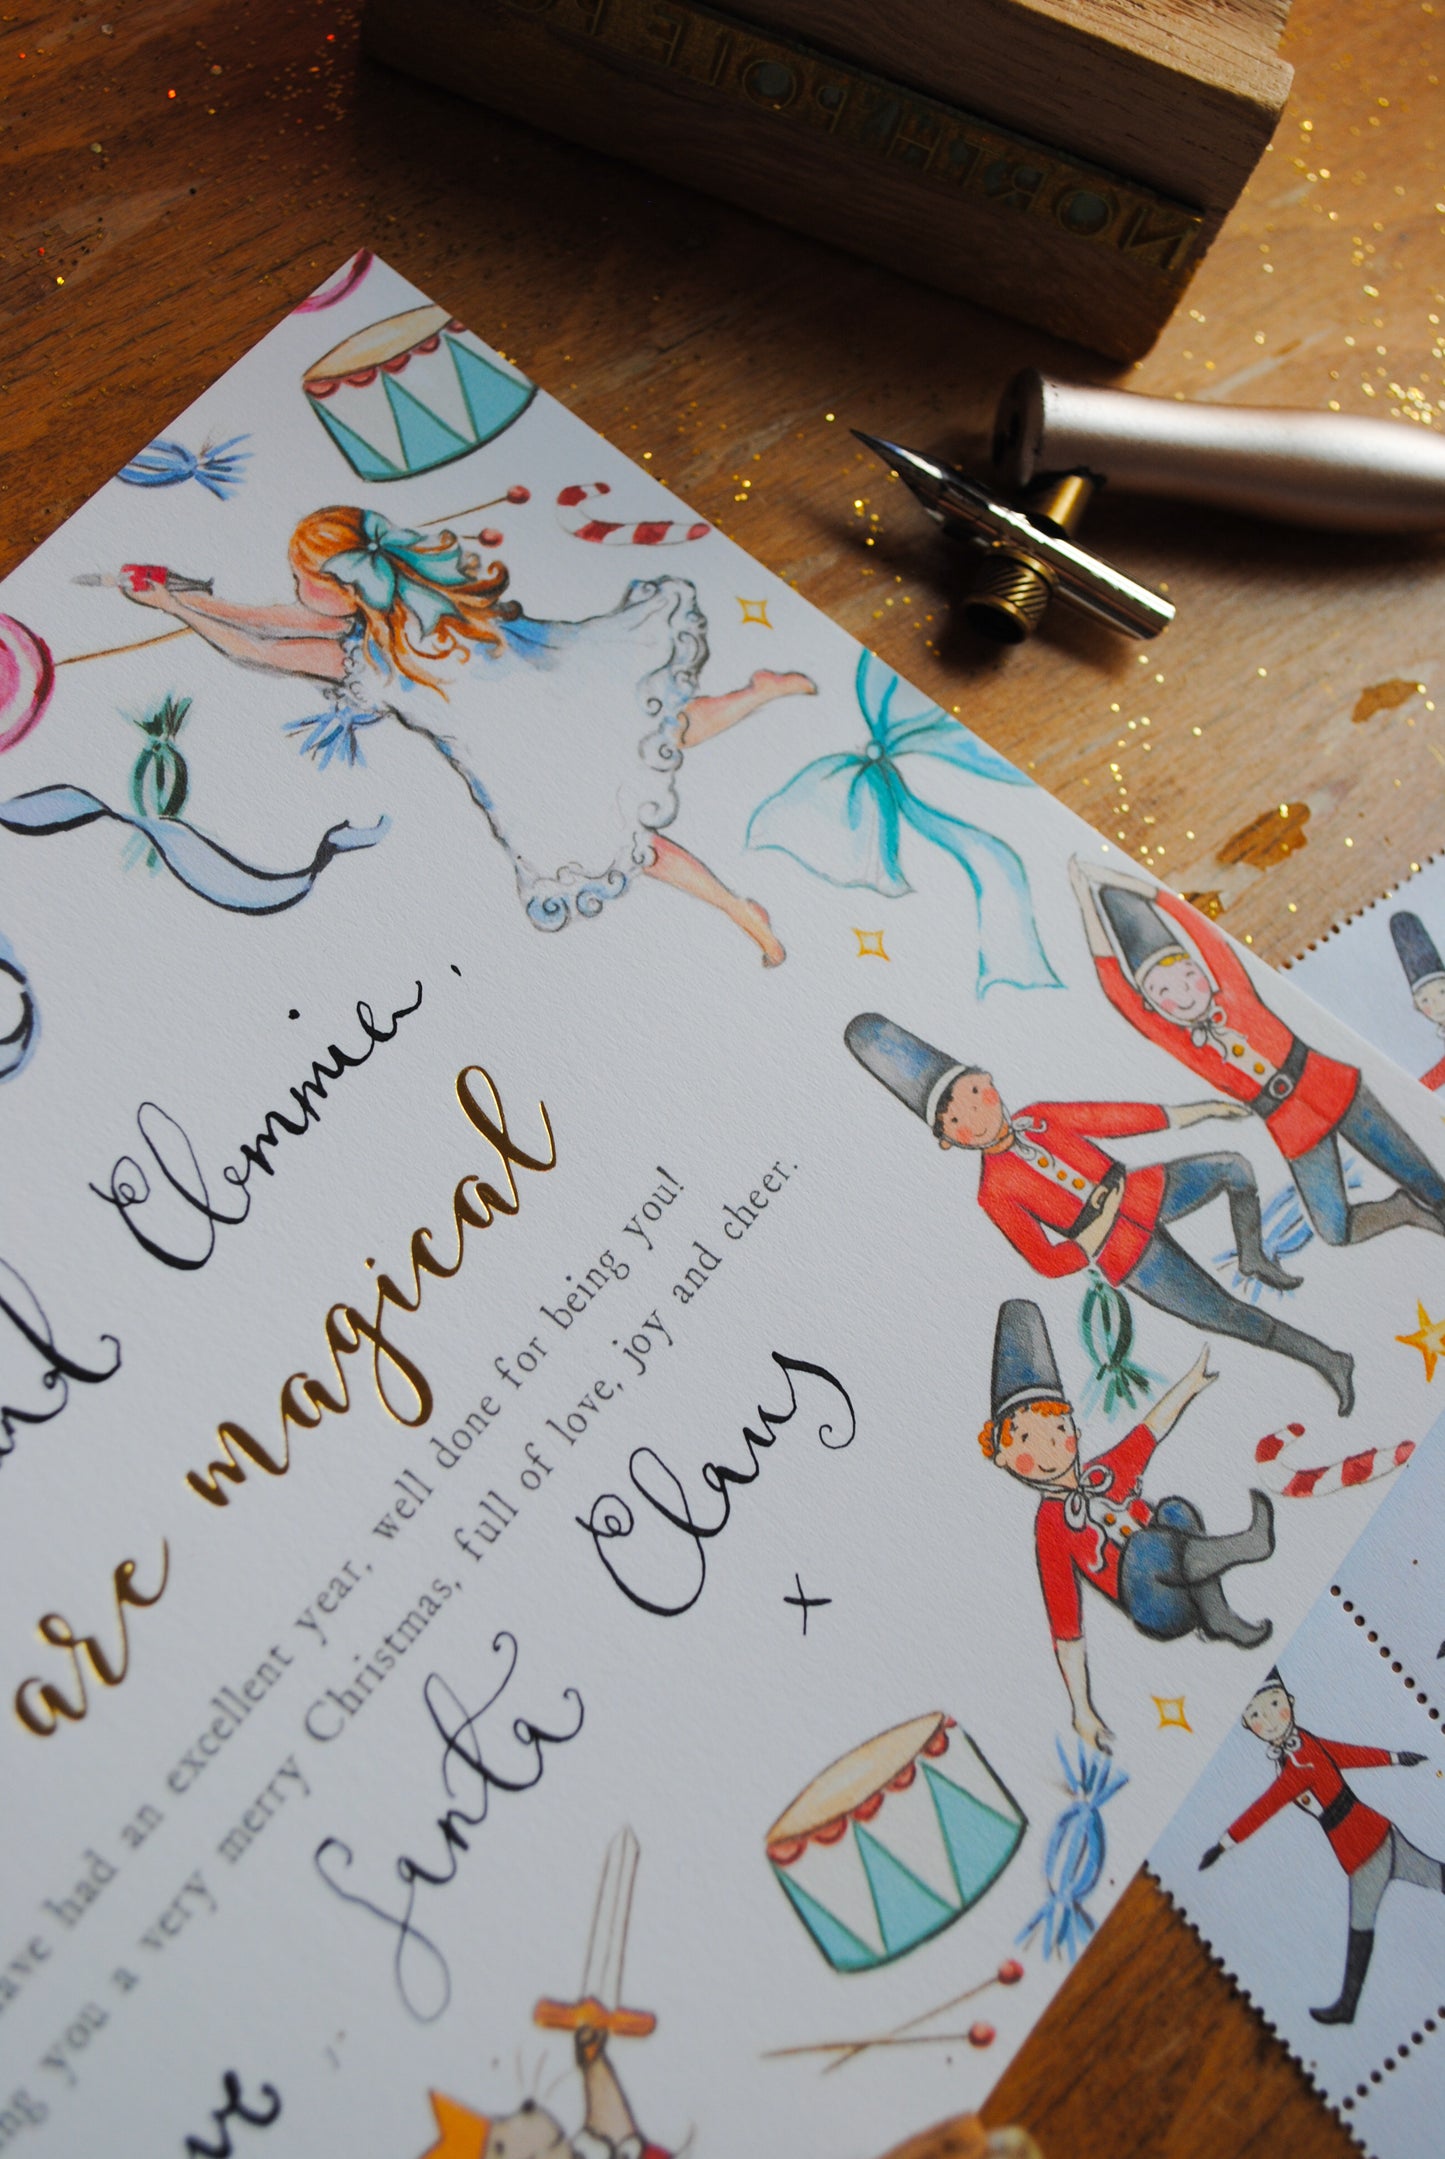 NORTH POLE PO
Clemmie,
are magical
have had an excellent year, well done for being you!
you a very merry Christmas, full of love, joy and cheer.
Santa Claus
x